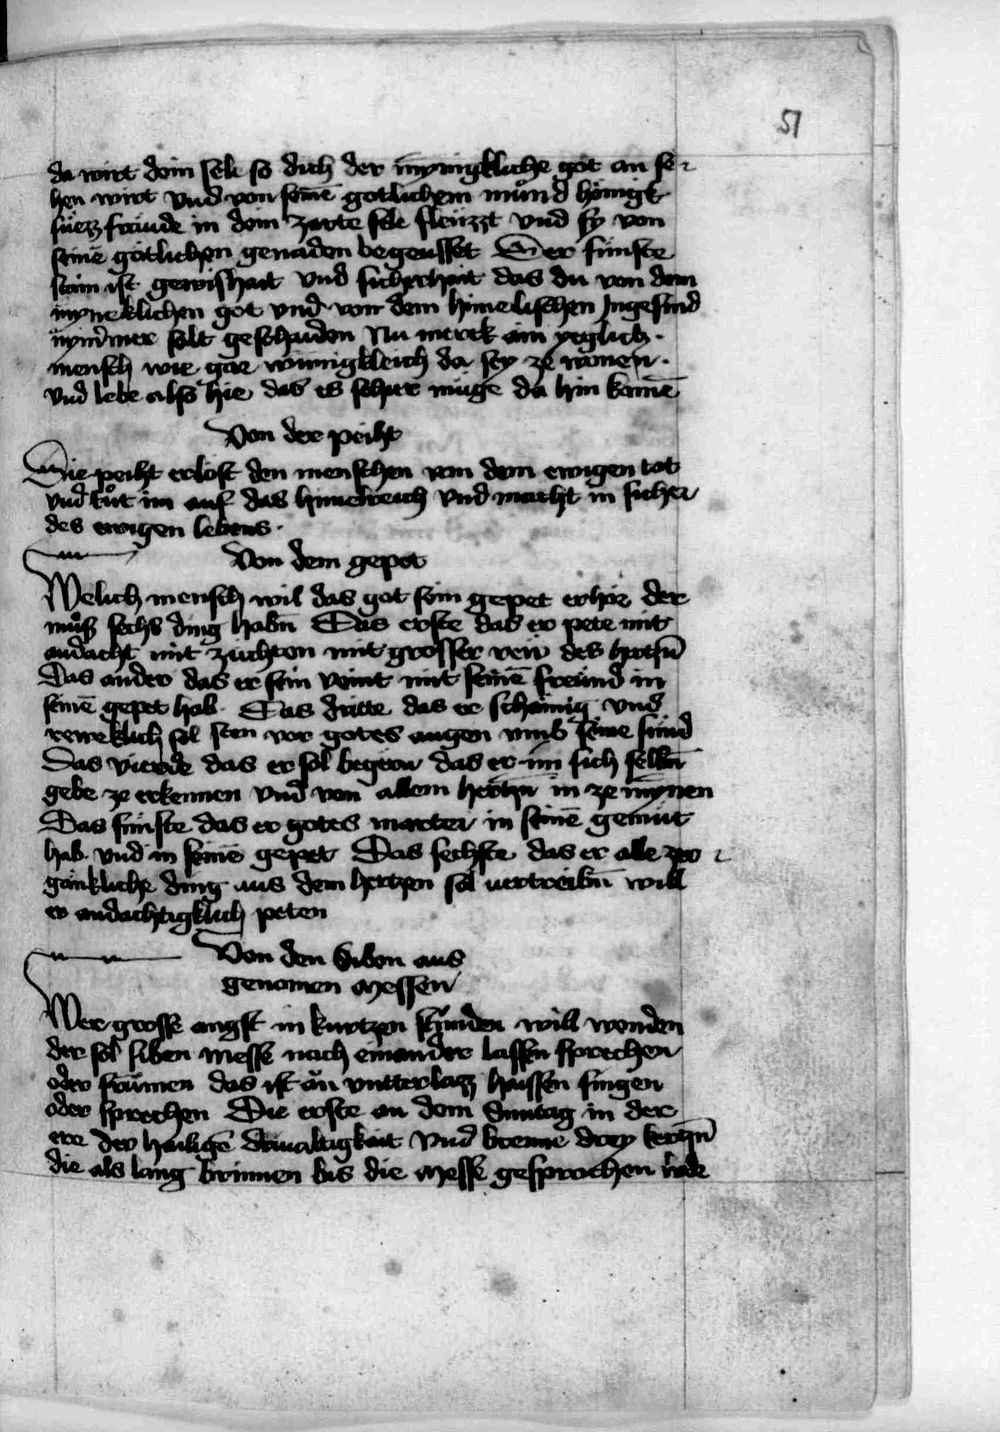 51
da wirt dein sele so dich der mynnigkliche got an se-
hen wirt vnd von seinē gotlichem mund honigk
suezz fraude in dein zarte sele fleuzzt vnd sy von
seinē gotlichen genaden begeusset Der funfte
stain ist gewishait vnd sicherhait das du von dem
myneklichen got vnd von dem himelischen Ingesind
nym̄mer solt geschaiden Nu merck ain yeglich
mensch wie gar wunigkleich da sey ze wonen .
vnd lebe also hie das es schier muge da hin komē
Von der peiht
Die peiht erlost den menschen von dem ewigen tot
vnd tůt im auf das himelreich vnd macht in sicher
des ewigen lebens .
Von dem gepet
Welich mensch wil das got sein gepet erhöre der
můß sechs ding habn̄ Das erste das er pete mit
andacht mit zuchten mit grosser rew des hertzn̄
Das ander das er sein veint mit seinē freund in
seinē gepet hab . Das dritte das er schamig vnd
reweklich sol sten vor gotes augen vmb seine sund
Das vierde das er sol begern das er im sich selbn̄
gebe ze erkennen vnd von allem hertzn̄ in ze mynen
Das funfte das er gotes marter in seinē gemut
hab . vnd in seinē gepet Das sechste das er alle zer-
gankliche ding aus dem hertzen sol vertreibn̄ will
er andachtigklich peten
Von den siben aus
genomen Messen
Wer grosse angst in kurtzen stunden will wenden
der sol siben messe nach einander lassn sprechen
oder frümen das ist an vntterlazz haissen singen
oder sprechen Die erste an dem Suntag in der
ere der heiligē driualtigkait vnd brenne drey kertzn̄
die als lang brinnen bis die Messe gesprochen